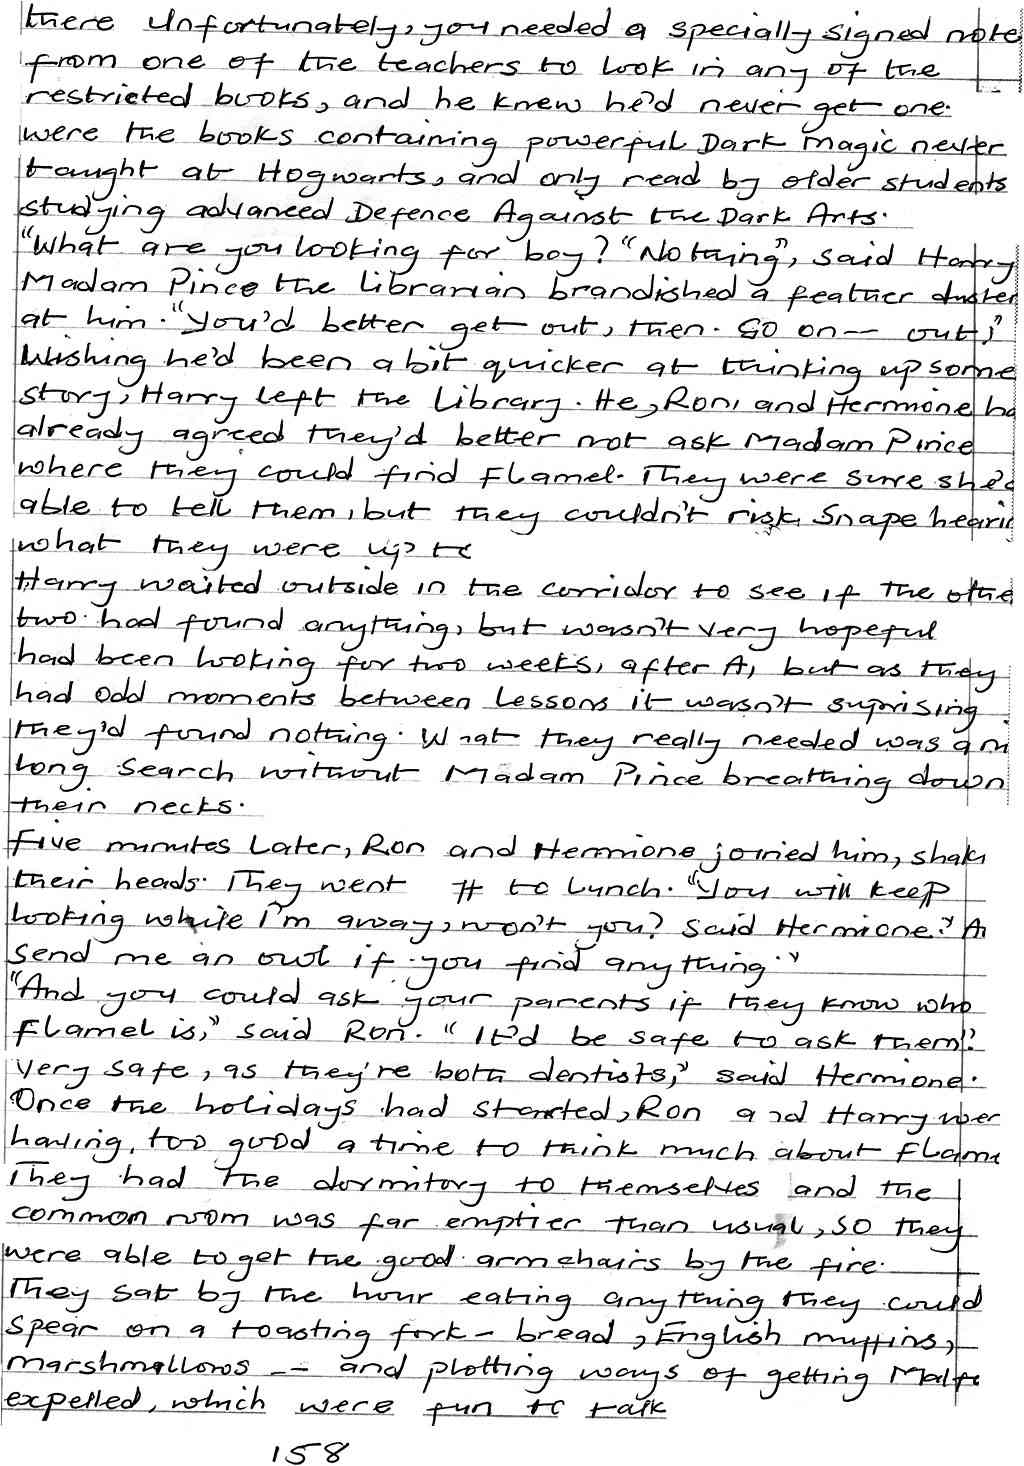 there Unfortunately, you needed a specially signed note
from one of the teachers to look in any of the
restricted books, and he knew he'd never get one.
were the books containing powerful Dark Magic never
taught at Hogwarts, and only read by older students
studying advanced Defence Against the Dark Arts.
"What are you looking for boy? "Nothing", said Harry
Madam Pince the librarian brandished a feather duster
at him. "You'd better get out, then. Go on — out!"
Wishing he'd been a bit quicker at thinking up some
story, Harry left the library. He, Ron, and Hermione ha
already agreed they'd better not ask Madam Pince
where they could find Flamel. They were sure she'd
able to tell them, but they couldn't risk Snape hearin
what they were up to
Harry waited outside in the corridor to see if the othe
two had found anything, but wasn't very hopeful
had been looking for two weeks, after A, but as they
had odd moments between lessons it wasn't suprising
they'd found nothing. What they really needed was a ni
long search without Madam Pince breathing down
their necks.
Five minutes later, Ron and Hermione joined him, shaki
their heads. They went # to lunch. "You will keep
looking while I'm away, won't you? said Hermione." An
send me an owl if you find anything."
"And you could ask your parents if they know who
Flamel is," said Ron. "It'd be safe to ask them."
Very safe, as they're both dentists," said Hermione.
Once the holidays had started, Ron and Harry wer
having, too good a time to think much about Flame
They had the dormitory to themselves and the
common room was far emptier than usual, so they
were able to get the good armchairs by the fire.
They sat by the hour eating anything they could
spear on a toasting fork – bread, English muffins,
marshmallows -- and plotting ways of getting Malfo
expelled, which were fun to talk
158